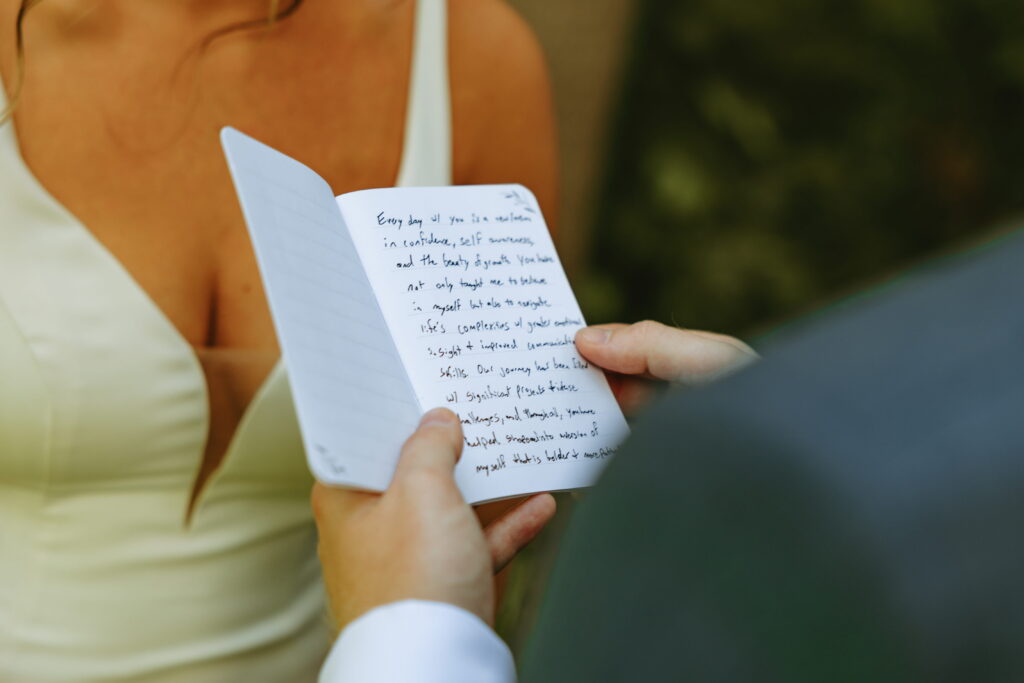 Every day w/ you is a new lesson
in confidence, self awareness,
and the beauty of growth. You have
not only taught me to believe
in myself but also to navigate
life's complexities w/ greater emotional
insight + improved communication
skills. Our journey has been filled
w/ significant projects + diverse
challenges, and through all, you have
helped shape me into a version of
myself that is bolder + more